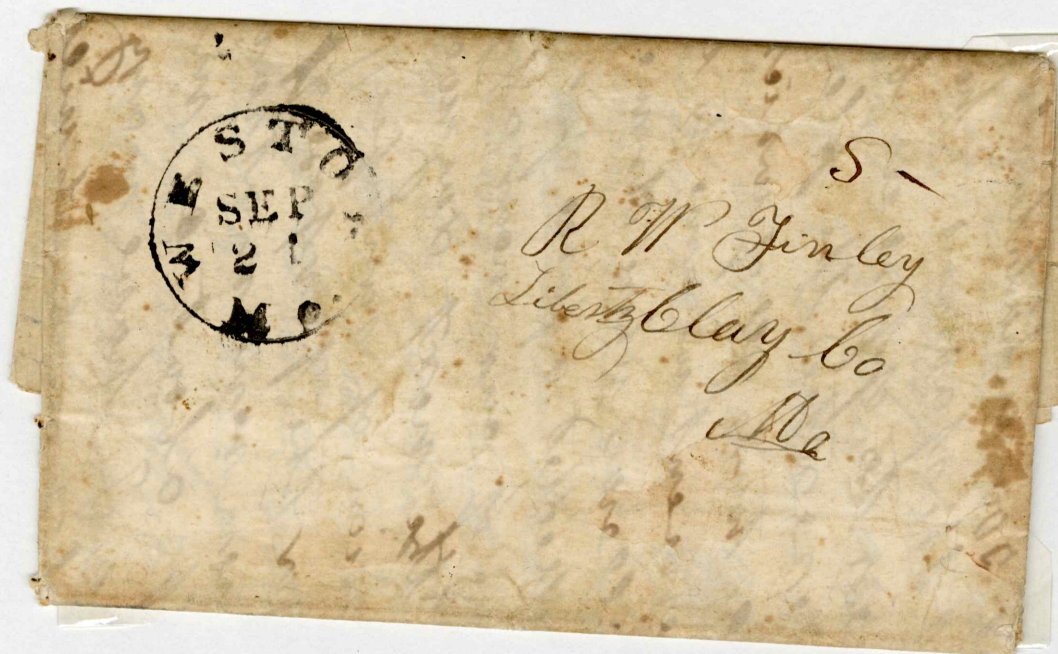 WESTO
SEP
21
MO
5 -
R W Finley
Liberty Clay Co
Mo